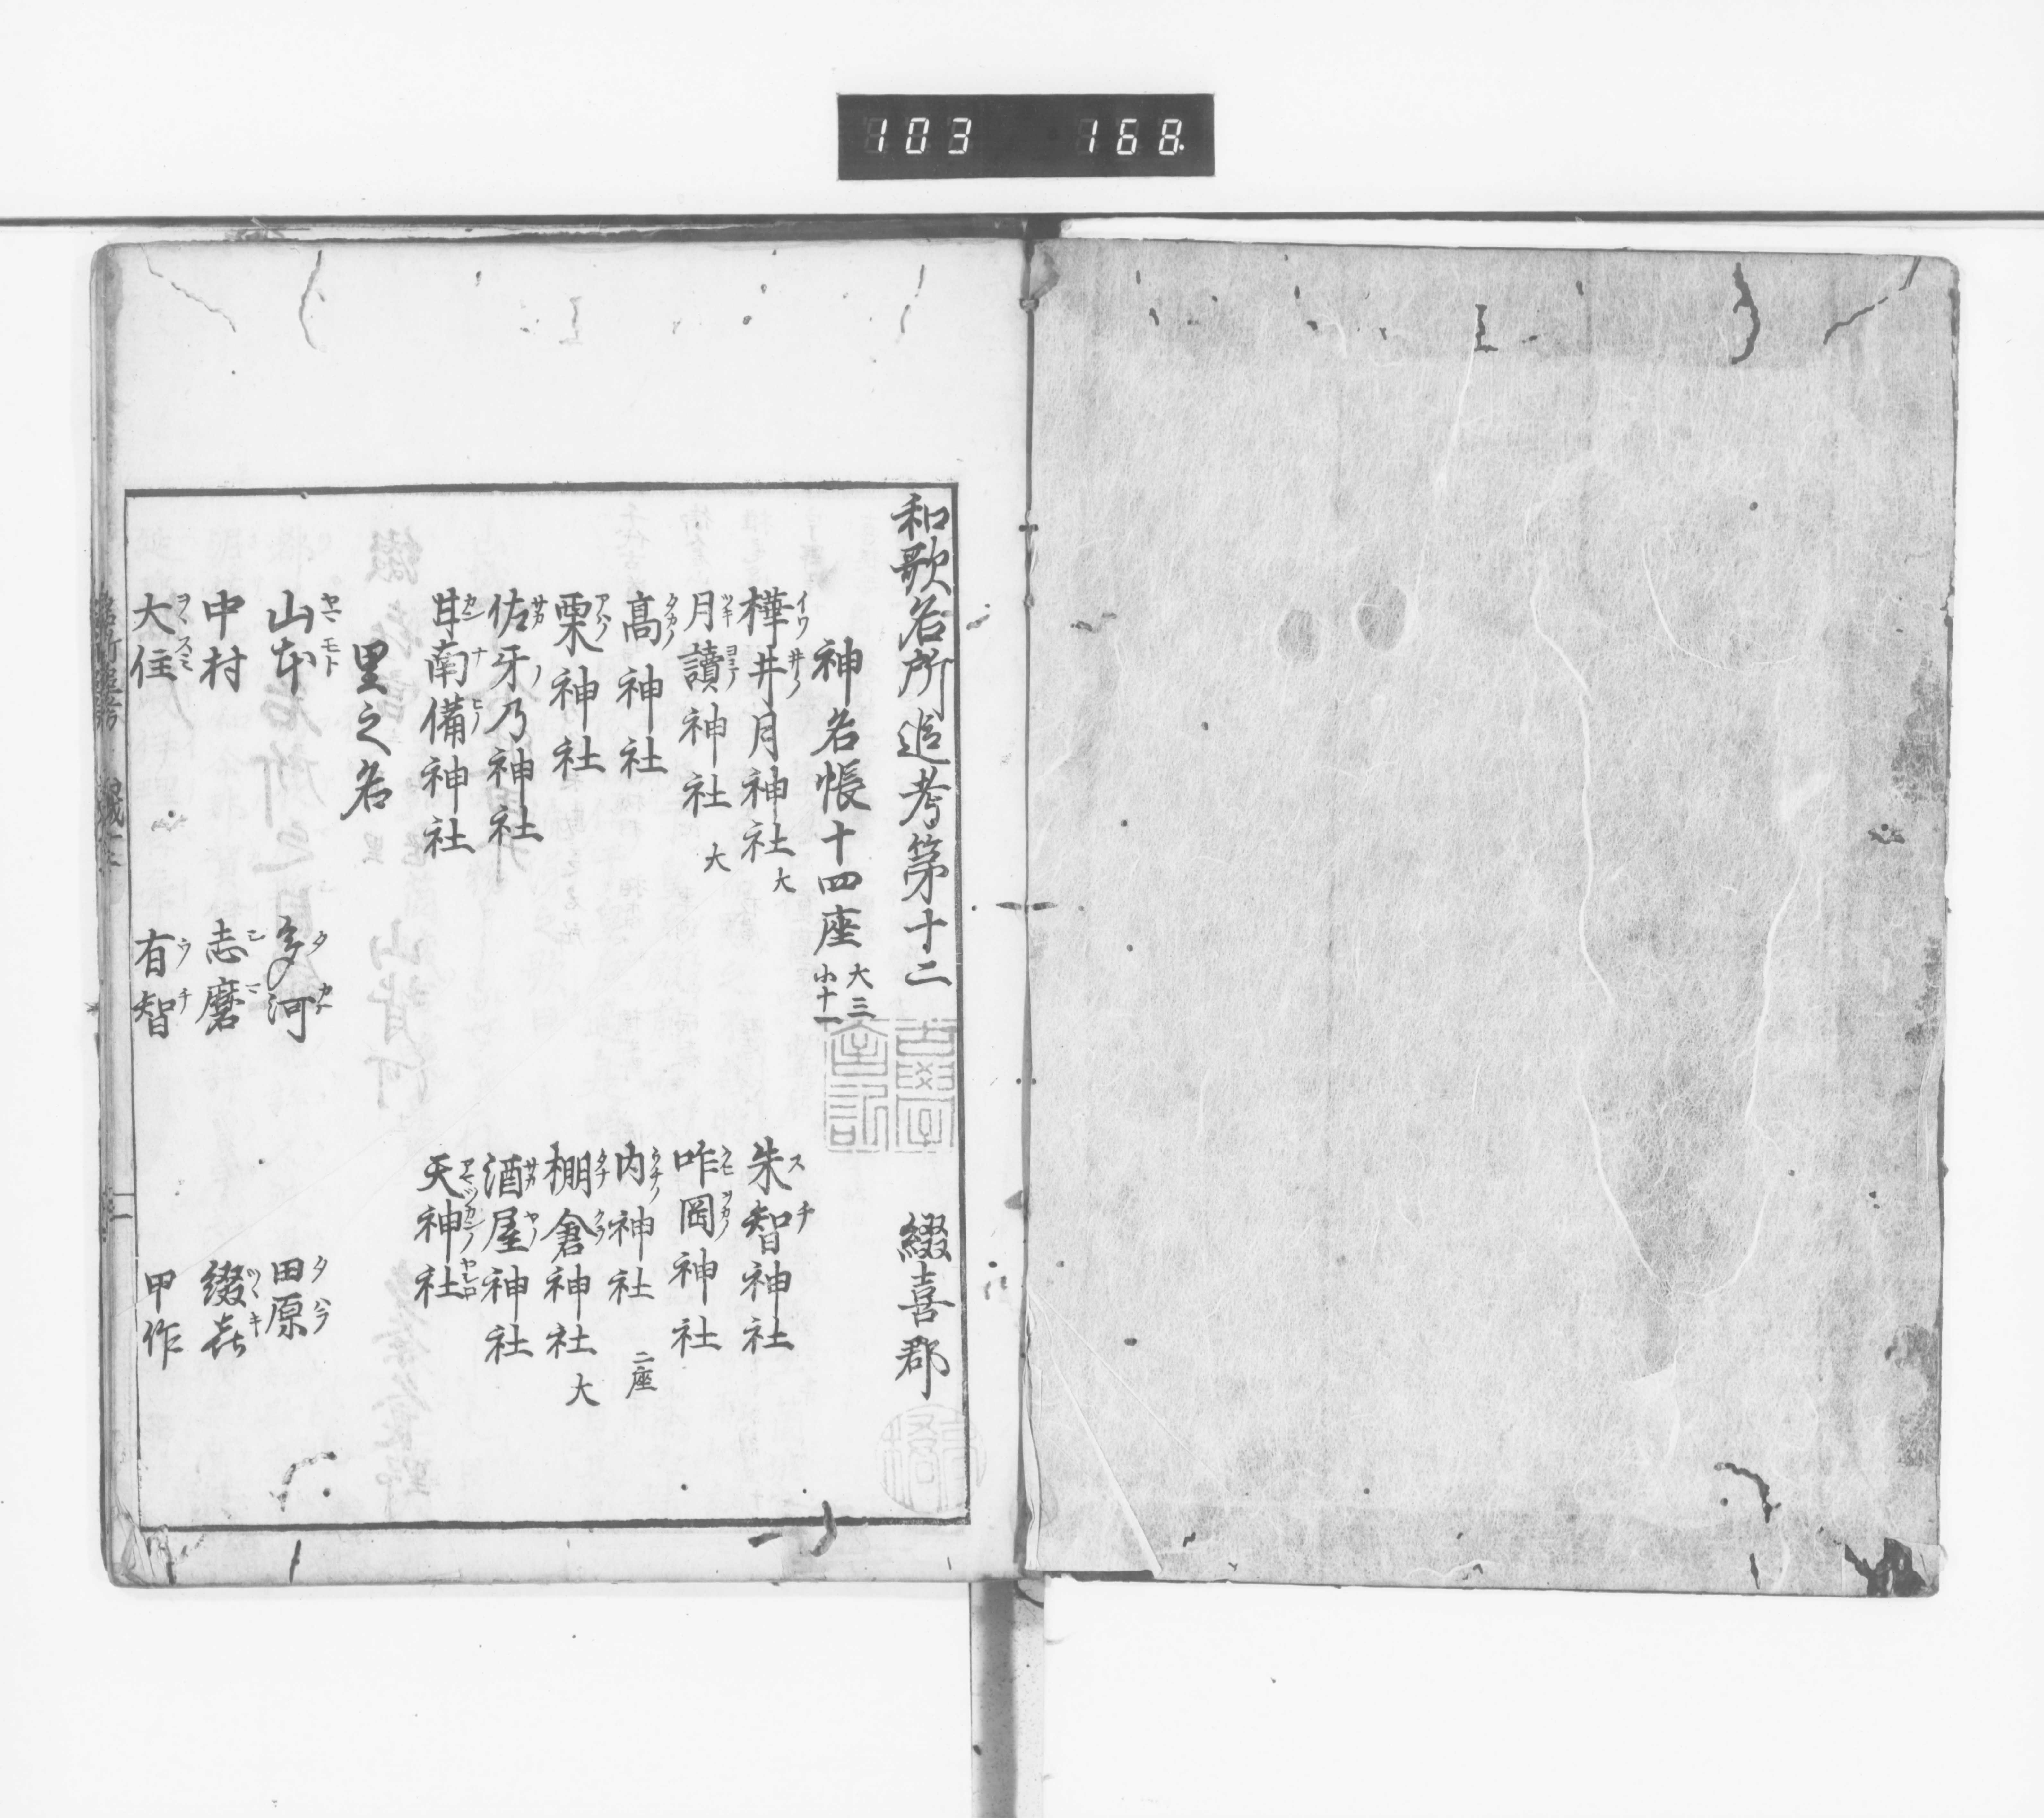 103 168
和歌名所追考第十二 綴喜郡
神名帳十四座 大三 小十一
樺井月神社 大 朱智神社
月讀神社 大 咋岡神社
髙神社 内神社 二座
粟神社 棚倉神社 大
佐牙乃神社 酒屋神社
甘南備神社 天神社
里之名
山本 多河 田原
中村 志磨 綴喜
大住 有智 甲作